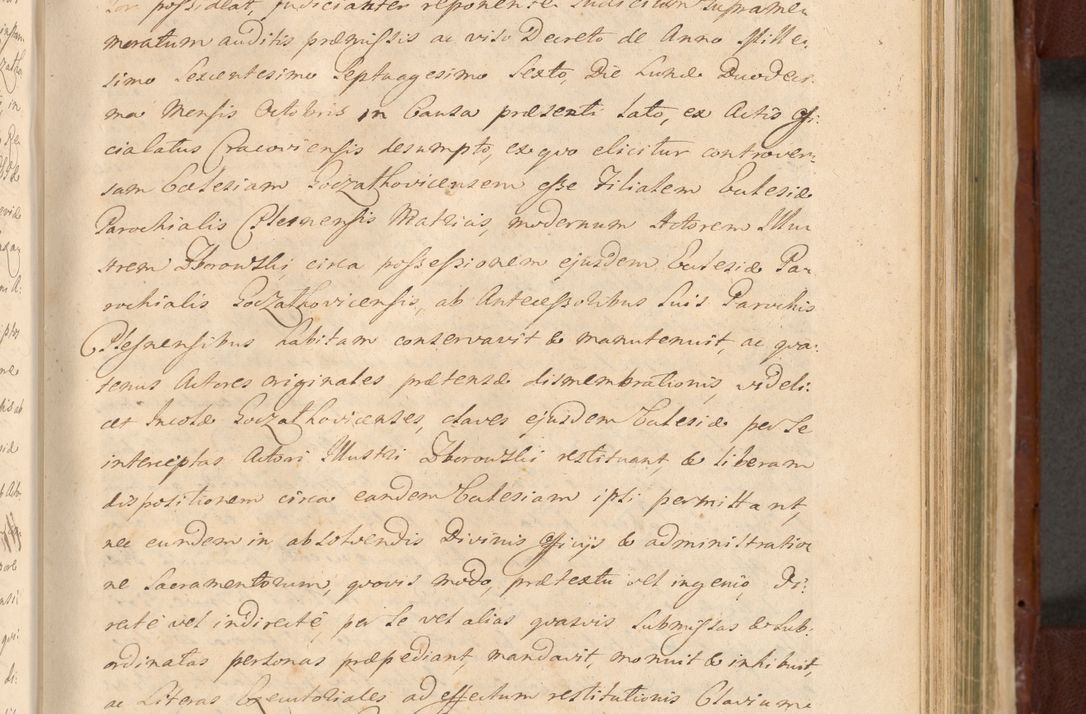 tor possideat, judicianter reponente. Judicium suprame-
moratum auditis præmissis ac viso Decreto de Anno Mille-
simo Sexcentesimo Septuagesimo Sexto, Die Lunæ Duodeci-
ma Mensis Octobris in Causa præsenti lato, ex Actis Offi-
cialatus Cracoviensis desumpto, ex quo elicitur controver-
sam Ecclesiam Goczałkovicensem esse Filialem Ecclesiæ
Parochialis Plesnensis Matricis, modernum Actorem Illu-
strem Zborowski circa possessionem ejusdem Ecclesiæ Pa-
rochialis Goczałkovicensis, ab Antecessoribus suis Parochis
Plesnensibus habitam conservavit & manutenuit, ac qua-
tenus Actores originales prætensæ dismembrationis, videli-
cet Incolæ Goczałkovicenses, claves ejusdem Ecclesiæ per se
interceptas Actori Illustri Zborowski restituant, & liberam
dispositionem circa eandem Ecclesiam ipsi permittant,
nec eundem in absolvendis Divinis Officijs & administratio-
ne Sacramentorum, quovis modo, prætextu vel ingenio, Di-
rectè vel indirectè, per se vel alias quasvis submissas & sub-
ordinatas personas præpediant, mandavit, monuit & inhibuit,
ac Literas Executoriales ad effectum restitutionis Clavium